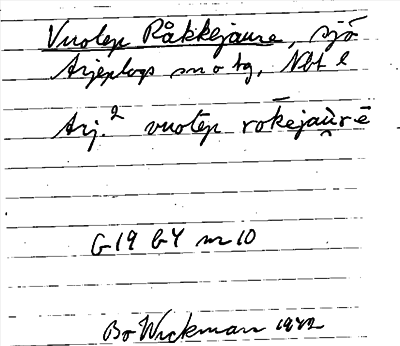 Vuolep Råkkejaure, sjö
Arjeplogs sn o tg, Nbt l
Arj.² vuotēp rōkejau̯rē
G 19 b4 nr 10
Bo Wickman 1942